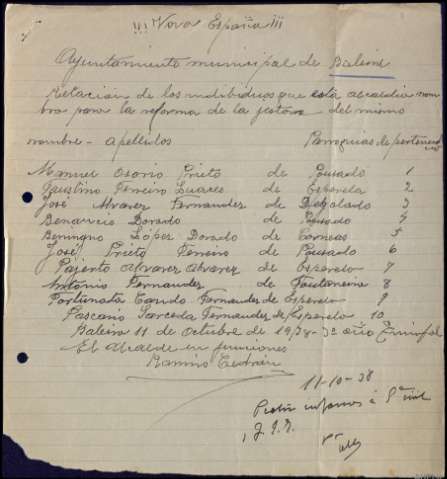 ¡¡¡ Nova España !!!
Ayuntamiento municipal de Baleira
Relacion de los indibiduos que esta alcaldia nom
bra para la reforma de la jestora del mismo
nombre - apellidos Parroquias de pertenencia
Manuel Osorio Prieto de Pousado 1
Faustino Ferreiro Suares de Esperela 2
José Alvarez Fernandez de Degolado 3
Benancio Dorado de Pousado 4
Benigno López Dorado de Corneas 5
José Prieto Ferreiro de Pousado 6
Alvarez Alvarez de Esperela 7
Antonio Fernandez de Fontaneira 8
Fortunato Fernandez de Esperela 9
Fernandez de Esperela 10
Baleira 11 de Octubre de 1938 - 3º año Triunfal
El Alcalde en funciones
Ramiro
11-10-38
informes á